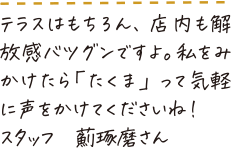 テラスはもちろん、店内も解
放感バツグンですよ。私をみ
かけたら「たくま」って気軽
に声をかけてくださいね！
スタッフ　薊琢磨さん